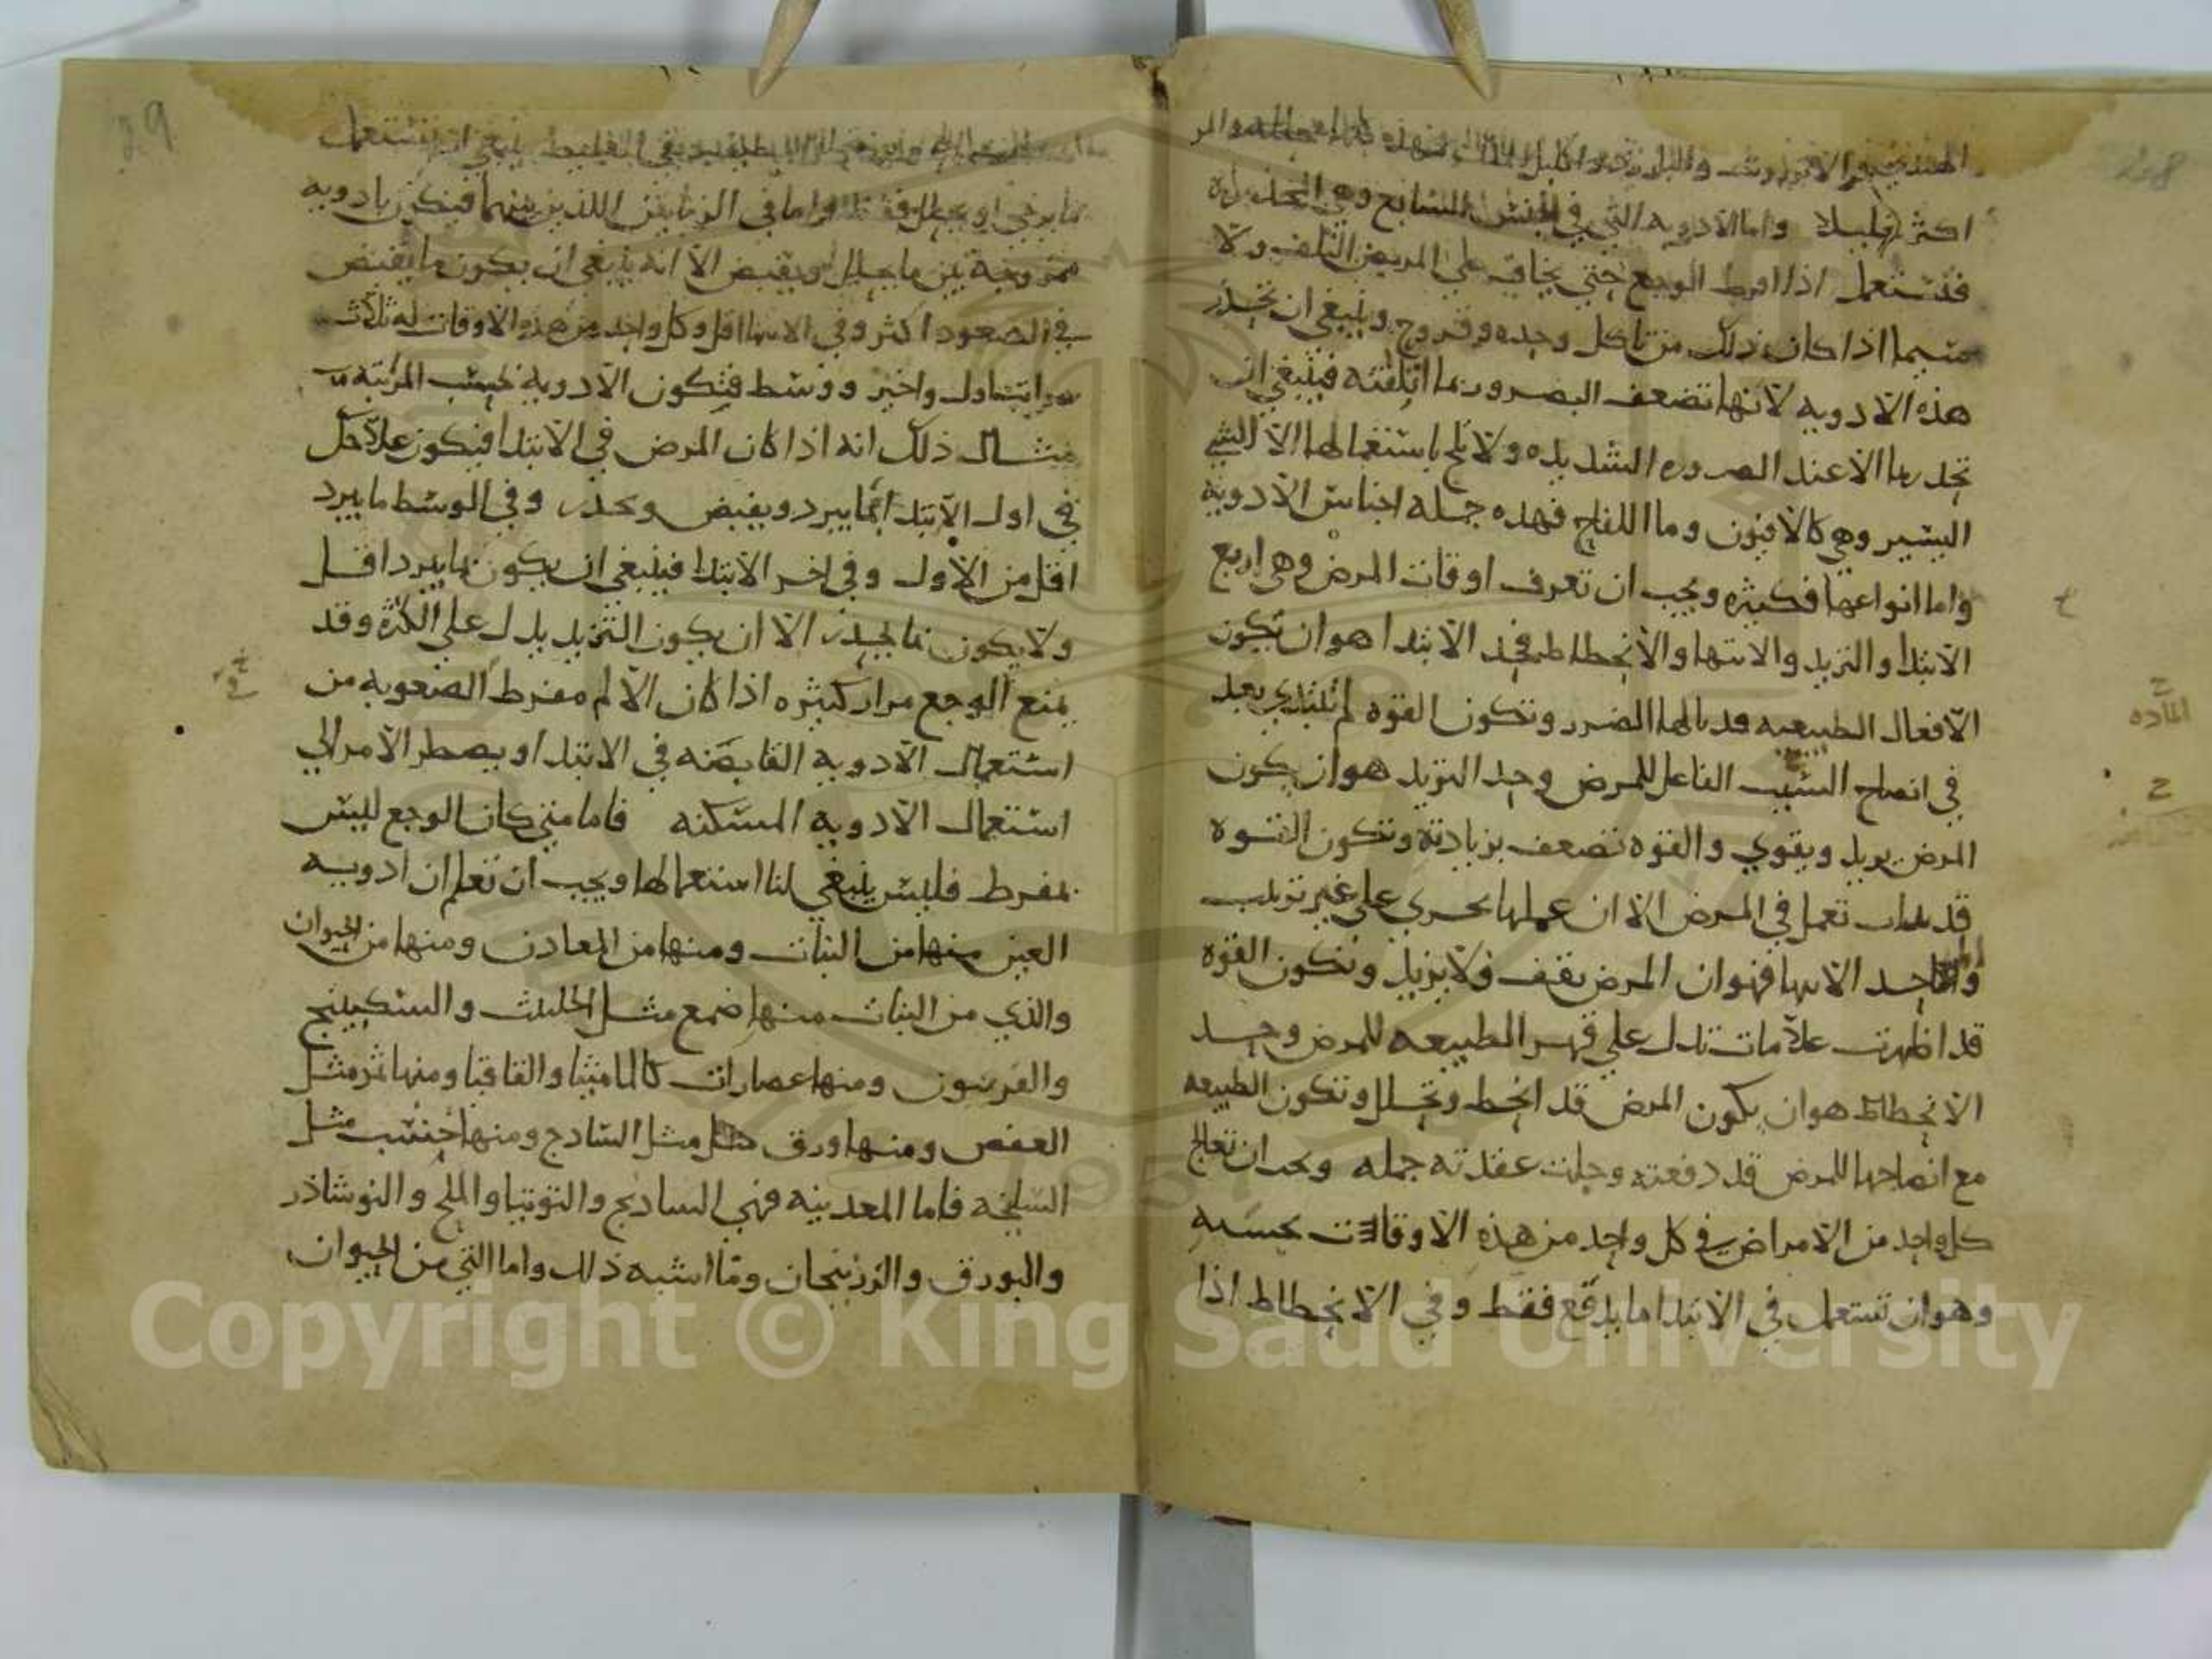 اكثر قليلا واما الادويه التي في الجنس السابع وهي المخدره
فتستعمل اذا افرط الوجع حتي يخاف علي المريض التلف ولا
سيما اذا كان ذلك من تاكل وحده وقروح وينبغي ان تحذر
هذه الادويه لانها تضعف البصر وربما اتلفته فينبغي ان
تحذرها الا عند الضروره الشديده ولا تلح باستعمالها الا الشي
اليسير وهي كالافيون وما اللفاح فهذه جمله اجناس الادوية
واما انواعها فكثيره ويجب ان تعرف اوقات المرض وهي اربع
الابتدا والتزيد والانتها والانحطاط فحد الابتدا هو ان تكون
الافعال الطبيعيه قد نالها الضرر وتكون القوه لم تبتدي بعد
في انضاج السبب الفاعل للمرض وحد التزيد هو ان يكون
المرض يزيد ويقوي والقوه تضعف بزيادته وتكون القوه
قد تعمل في المرض الا ان عملها يجري علي غير ترتيب
واما حد الانتها فهو ان المرض يقف ولا يزيد وتكون القوه
قد اظهرت علامات تدل علي قهر الطبيعه للمرض وحد
الانحطاط هو ان يكون المرض قد انحط وتحلل وتكون الطبيعه
مع انضاجها للمرض قد دفعته وحلت عقدته جمله ويجب ان تعالج
كل واحد من الامراض في كل واحد من هذه الاوقات بحسبه
وهو ان تستعمل في الابتدا ما يدفع فقط وفي الانحطاط اذا
المادة
ما يرخي او يحلل فقط واما في الزمانين اللذين بينهما فيكون بادويه
ممزوجة بين ما يحلل ويقبض الا انه ينبغي ان يكون ما يقبض
في الصعود اكثر وفي الانتها اقل وكل واحد من هذه الاوقات له ثلاث
مراتب اول واخير ووسط فتكون الادوية بحسب المرتبه
مثال ذلك انه اذا كان المرض في الابتدا فيكون علاجك
في اول الابتدا بما يبرد ويقبض ويخدر وفي الوسط ما يبرد
اقل من الاول وفي اخر الابتدا فينبغي ان يكون بما يبرد اقل
ولا يكون بما يخدر الا ان يكون التزيد يدل علي الكثرة وقد
يمنع الوجع مرار كثيره اذا كان الالم مفرط الصعوبه من
استعمال الادويه القابضه في الابتدا ويضطر الامر الي
استعمال الادويه المسكنه فاما متي كان الوجع ليس
بمفرط فليس ينبغي لنا استعمالها ويجب ان تعلم ان ادويه
العين منها من النبات ومنها من المعادن ومنها من الحيوان
والذي من النبات منها صمغ مثل الحلتيت والسكبينج
والفربيون ومنها عصارات كالماميثا والقاقيا ومنها ثمر مثل
العفص ومنها ورق مثل السادج ومنها خشب مثل
السليخه فاما المعدنيه فهي السادنج والتوتيا والملح والنوشاذر
والبورق والزرنيخان وما اشبه ذلك واما التي من الحيوان
29
Copyright © King Saud University